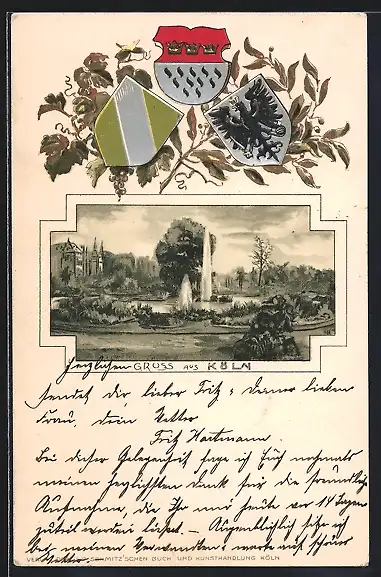 Herzlichen GRUSS AUS KÖLN
sendet dir lieber Fritz & deiner lieben
Frau, dein Vetter
Fritz Hartmann.
Bei dieser Gelegenheit sage ich Euch nochmals
meinen herzlichsten Dank für die freundliche
Aufnahme, die Ihr mir heute vor 14 Tagen
zuteil werden liesset. — Augenblicklich
bei meinen Verwandten &
SCHMITZ'SCHEN BUCH UND KUNSTHANDLUNG KÖLN
Wetter.